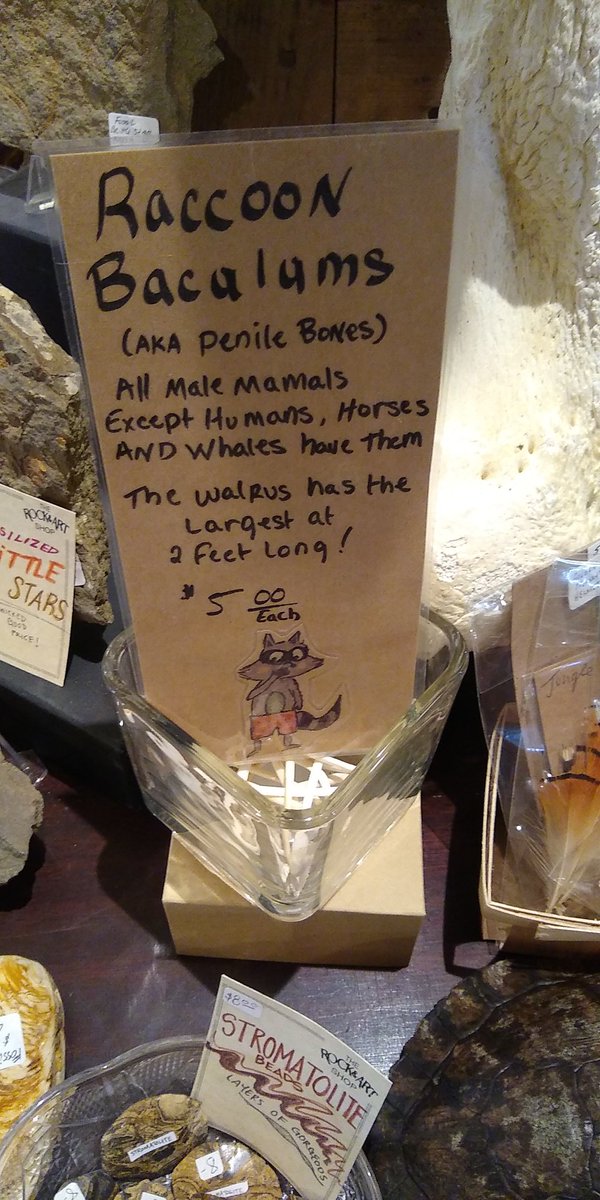 Raccoon
Baculums
(AKA Penile Bones)
All Male Mamals
Except Humans, Horses
AND Whales have Them
The walrus has the
Largest at
2 Feet Long!
$5 00
Each
THE
ROCK & ART
SHOP
SILIZED
iTTLE
STARS
WICKED
GOOD
PRICE!
Jungle
$8.00
STROMATOLITE
BEADS
THE
ROCK & ART
SHOP
LAYERS OF GORGEOUS
STROMATOLITE
8